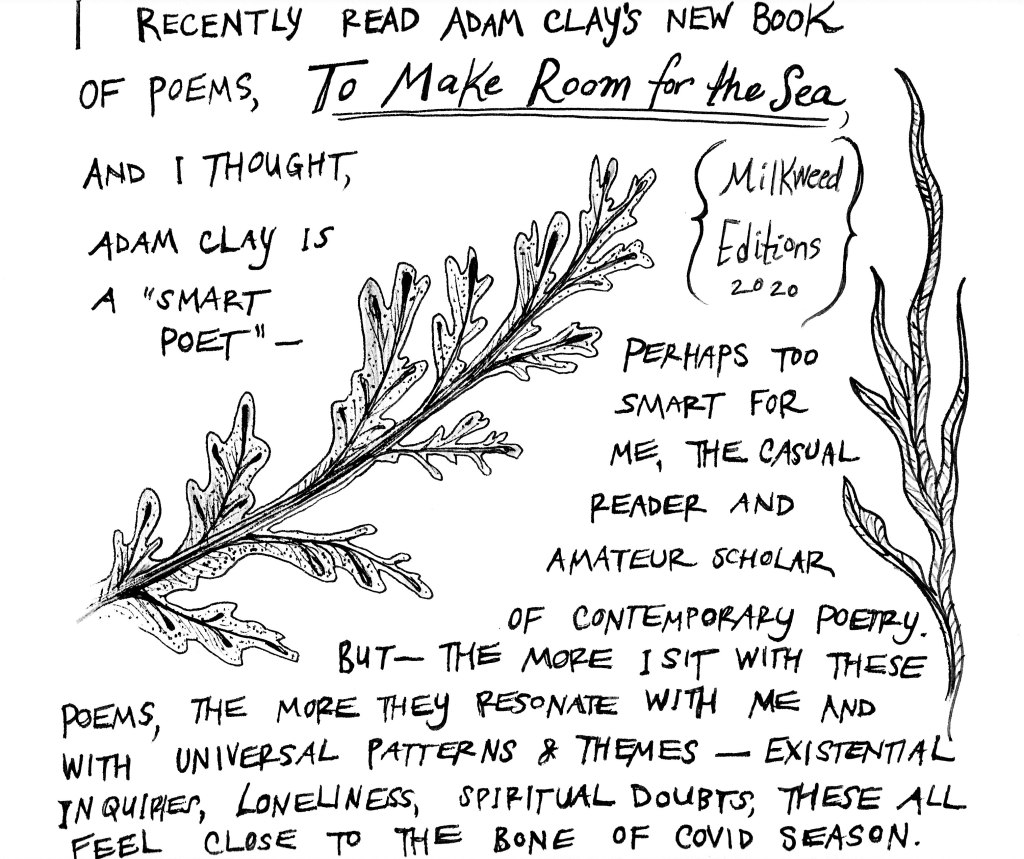 I RECENTLY READ ADAM CLAY'S NEW BOOK
OF POEMS, To Make Room for the Sea,
{Milkweed
Editions
2020}
AND I THOUGHT,
ADAM CLAY IS
A "SMART
POET" —
PERHAPS TOO
SMART FOR
ME, THE CASUAL
READER AND
AMATEUR SCHOLAR
OF CONTEMPORARY POETRY.
BUT — THE MORE I SIT WITH THESE
POEMS, THE MORE THEY RESONATE WITH ME AND
WITH UNIVERSAL PATTERNS & THEMES — EXISTENTIAL
INQUIRIES, LONELINESS, SPIRITUAL DOUBTS, THESE ALL
FEEL CLOSE TO THE BONE OF COVID SEASON.